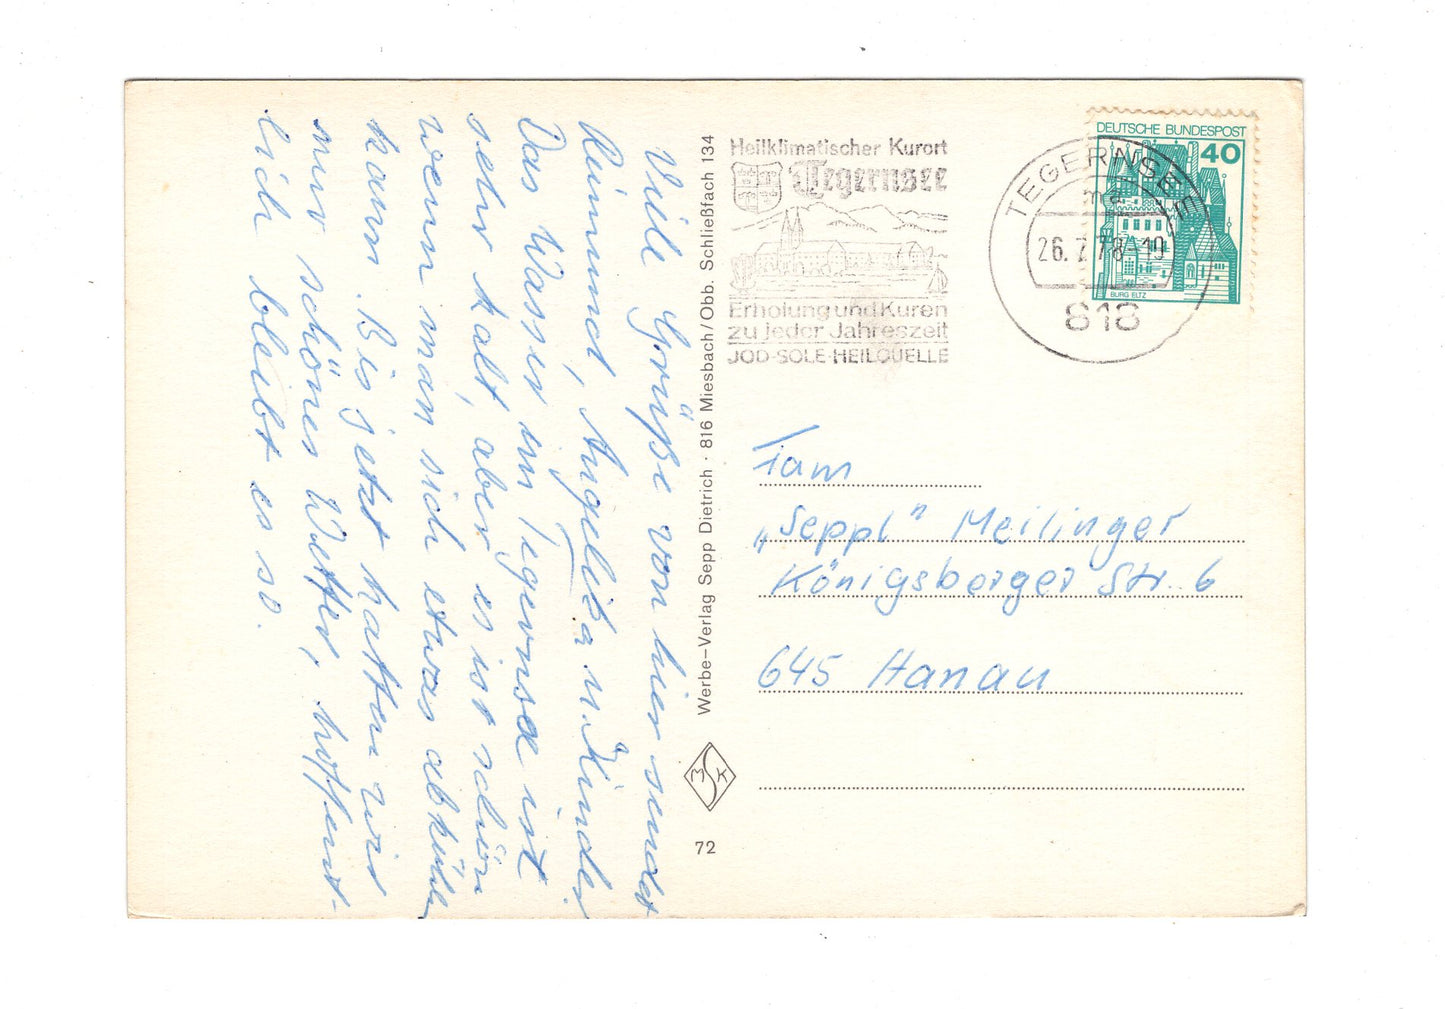 Viele Grüße von hier sendet
Raimund, Angelika u. Kinder
Das Wasser im Tegernsee ist
sehr kalt, aber es ist schön
wenn man sich etwas abkühlen
kann. Bis jetzt hatten wir
nur schönes Wetter, hoffent-
lich bleibt es so.
Werbe-Verlag Sepp Dietrich · 816 Miesbach/Obb. Schließfach 134
MSK
72
Heilklimatischer Kurort
Tegernsee
Erholung und Kuren
zu jeder Jahreszeit
JOD-SOLE-HEILQUELLE
TEGERNSEE
ma
26.7.78-19
818
DEUTSCHE BUNDESPOST
40
BURG ELTZ
Fam
„Seppl" Meilinger
Königsberger Str. 6
645 Hanau